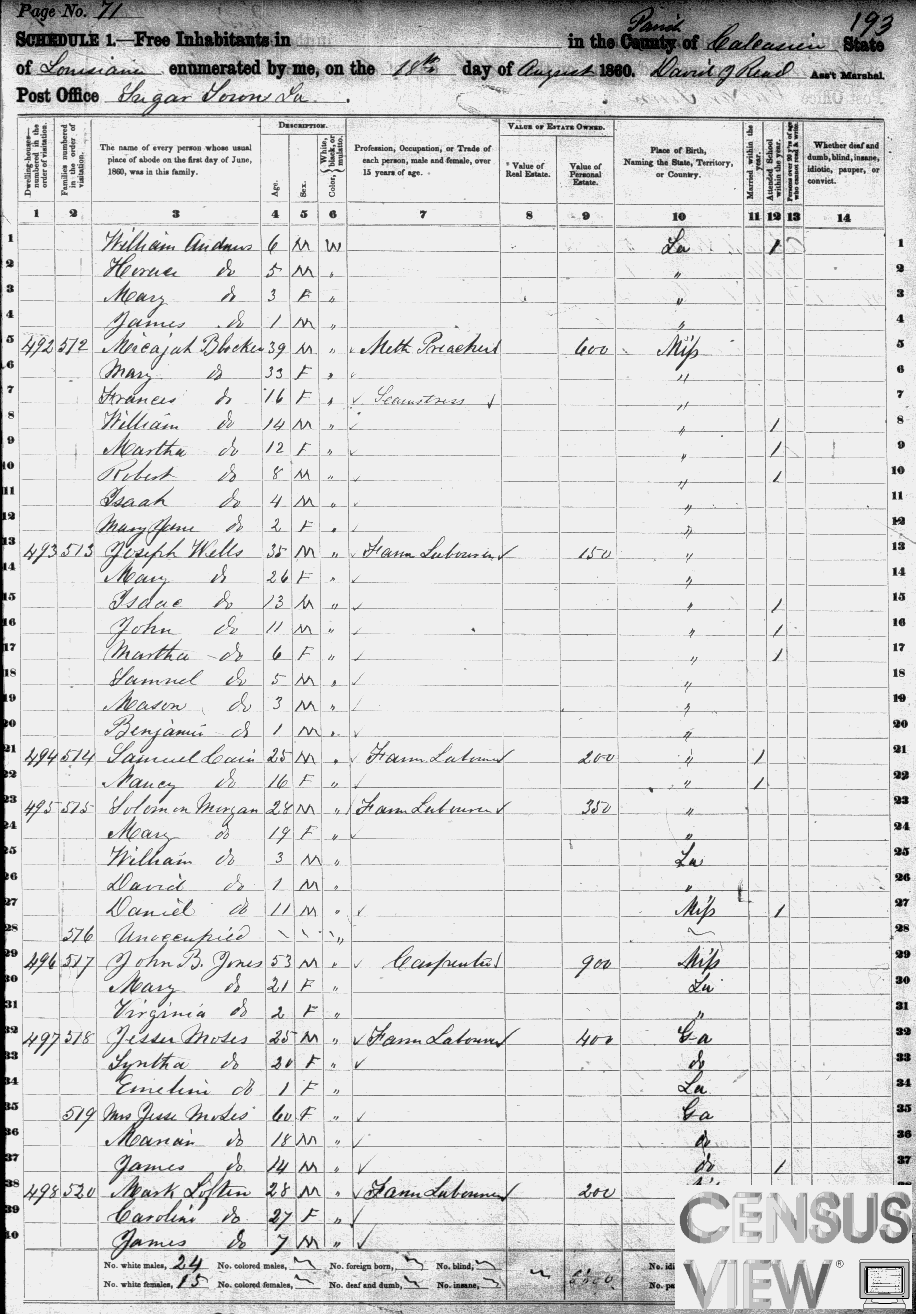 Page No. 71
193
SCHEDULE 1.—Free Inhabitants in in the County of Parish Calcasieu State
of Louisiana enumerated by me, on the 18th day of August 1860. David J Read Ass't Marshal.
Post Office Sugar Town La.
DESCRIPTION. VALUE OF ESTATE OWNED.
Dwelling-houses—numbered in the order of visitation.
Families numbered in the order of visitation.
The name of every person whose usual place of abode on the first day of June, 1860, was in this family.
Age.
Sex.
Color, White, black, or mulatto.
Profession, Occupation, or Trade of each person, male and female, over 15 years of age.
Value of Real Estate.
Value of Personal Estate.
Place of Birth, Naming the State, Territory, or Country.
Married within the year.
Attended School within the year.
Persons over 20 y'rs of age who cannot read & write.
Whether deaf and dumb, blind, insane, idiotic, pauper, or convict.
1 2 3 4 5 6 7 8 9 10 11 12 13 14
1 William Andrews 6 M W La 1 1
2 Horace do 5 M " " 2
3 Mary do 3 F " " 3
4 James do 1 M " " 4
5 492 512 Micajah Blocker 39 M " Meth Preacher 600 Miss 5
6 Mary do 33 F " " 6
7 Frances do 16 F " Seamstress " 7
8 William do 14 M " " 1 8
9 Martha do 12 F " " 1 9
10 Robert do 8 M " " 1 10
11 Isaah do 4 M " " 11
12 Mary Jane do 2 F " " 12
13 493 513 Joseph Wells 35 M " Farm Labourer 150 " 13
14 Mary do 26 F " " 14
15 Isaac do 13 M " " 1 15
16 John do 11 M " " 1 16
17 Martha do 6 F " " 1 17
18 Samuel do 5 M " " 18
19 Mason do 3 M " " 19
20 Benjamin do 1 M " " 20
21 494 514 Samuel Cain 25 M " Farm Labourer 200 " 1 21
22 Nancy do 16 F " " 1 22
23 495 515 Solomon Morgan 28 M " Farm Labourer 350 " 23
24 Mary do 19 F " " 24
25 William do 3 M " La 25
26 David do 1 M " " 26
27 Daniel do 11 M " Miss 1 27
28 516 Unoccupied " 28
29 496 517 John B. Jones 53 M " Carpenter 900 Miss 29
30 Mary do 21 F " La 30
31 Virginia do 2 F " " 31
32 497 518 Jesser Moses 25 M " Farm Labourer 400 Ga 32
33 Syntha do 20 F " do 33
34 Emeline do 1 F " La 34
35 519 Mrs Jesse Moses 60 F " Ga 35
36 Marian do 18 M " do 36
37 James do 14 M " do 1 37
38 498 520 Mark Loften 28 M " Farm Labourer 200 38
39 Caroline do 27 F "
40 James do 7 M "
No. white males, 24 No. colored males, No. foreign born, No. blind, No. idi
No. white females, 15 No. colored females, No. deaf and dumb, No. insane, No. pa
CENSUS
VIEW®